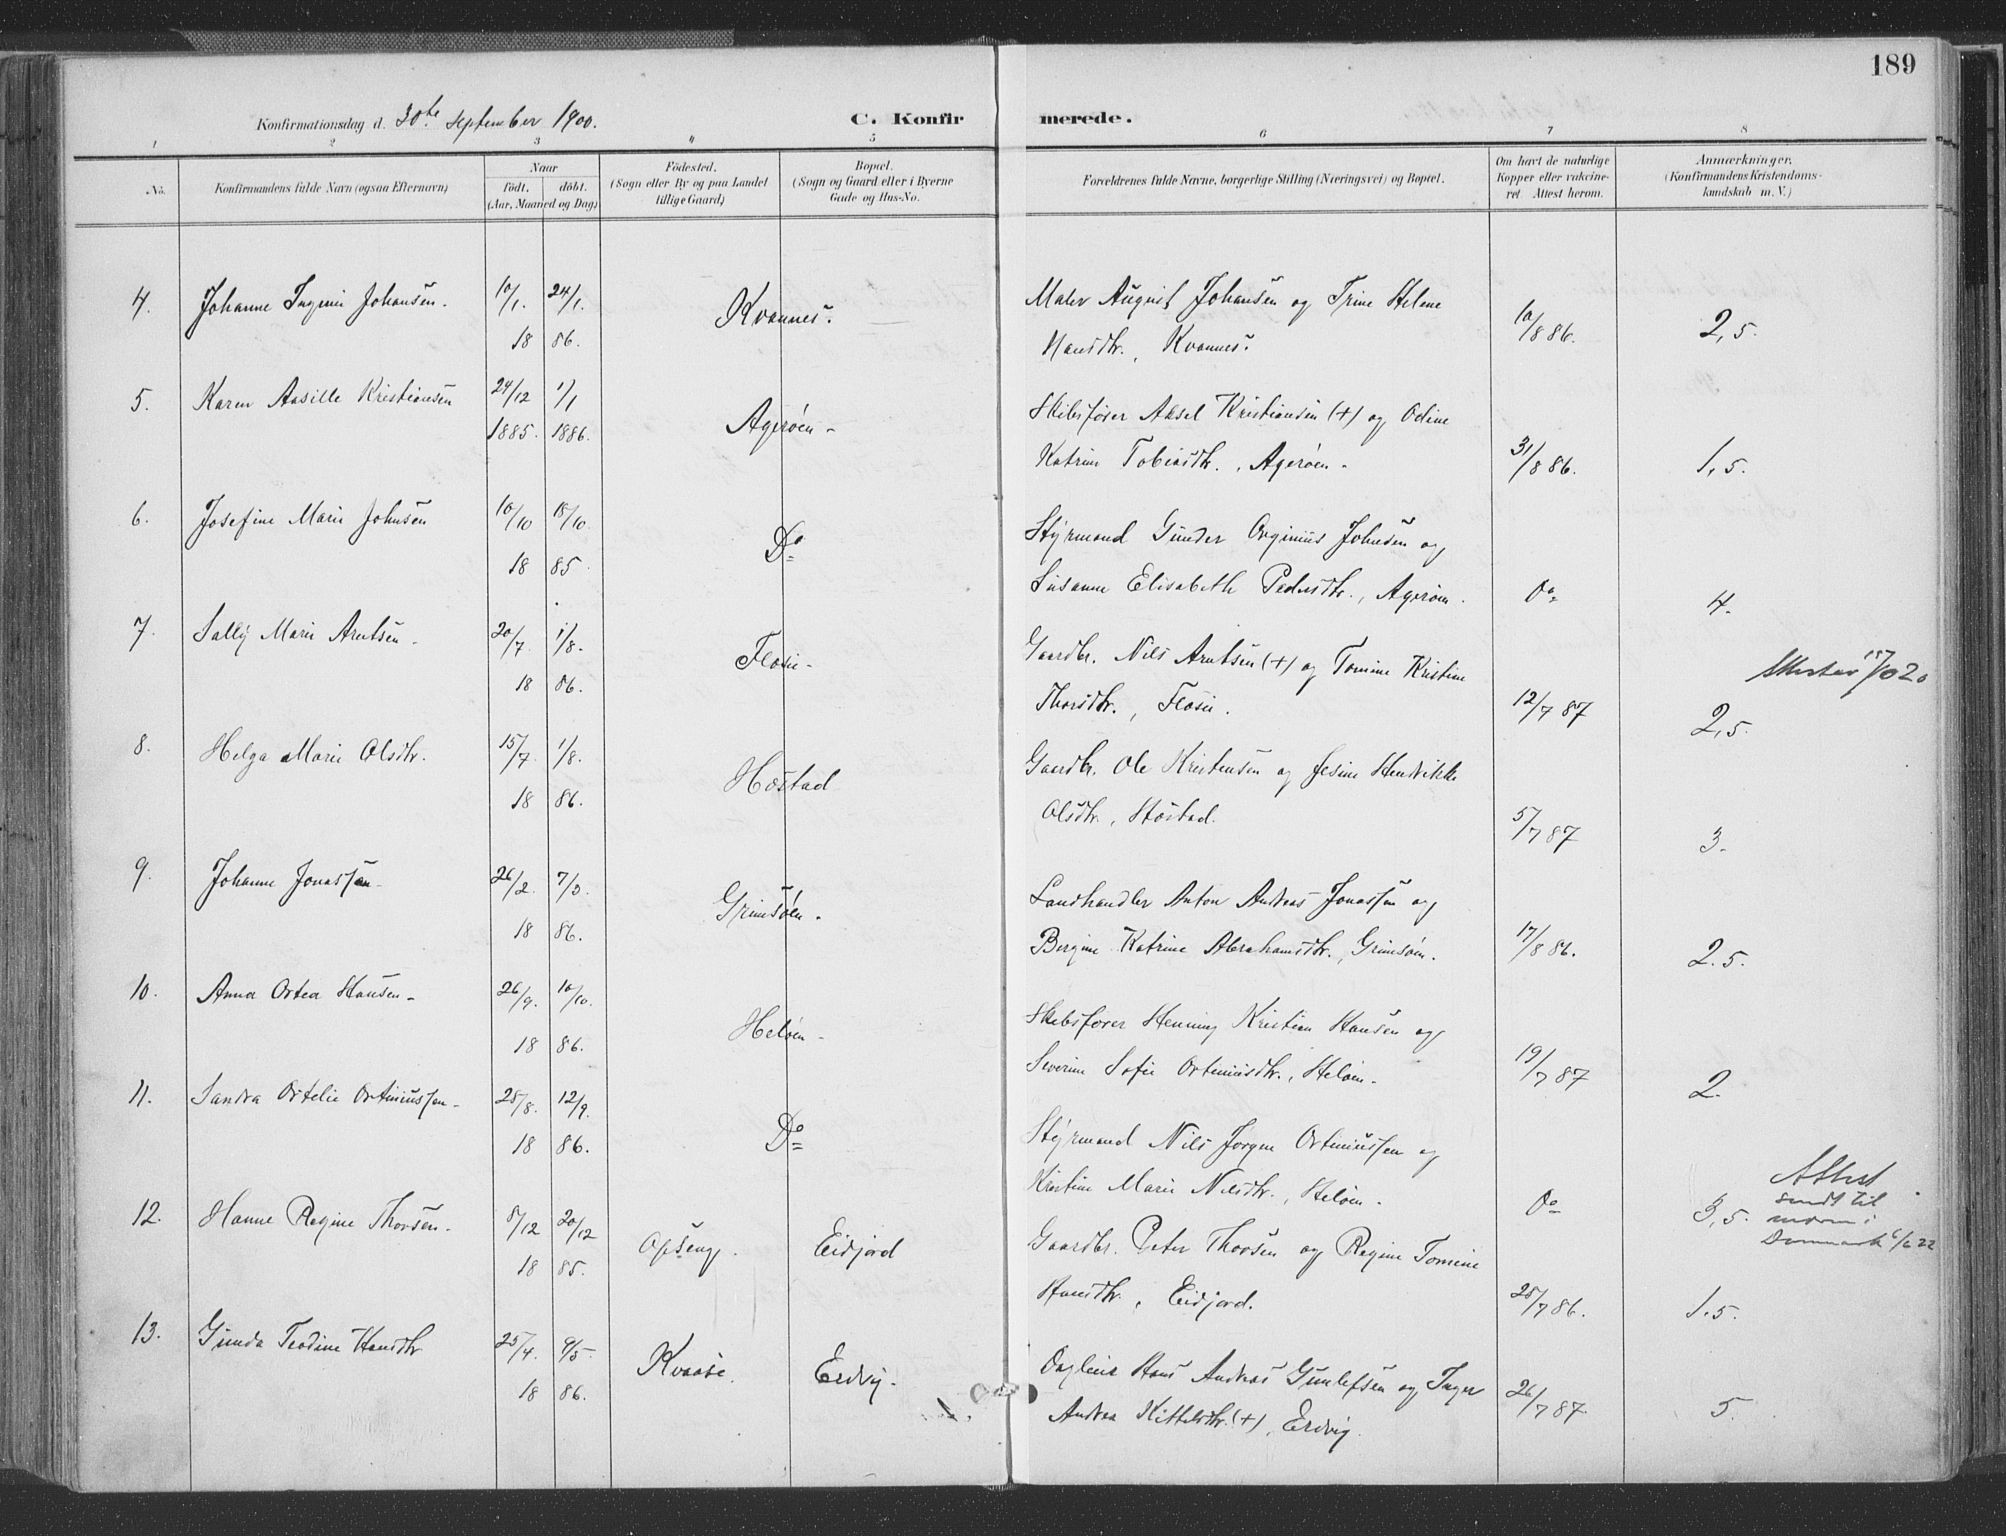 189
Konfirmationsdag d. 30te september 1900.
C. Konfirmerede.
1 2 3 4 5 6 7 8
No.
Konfirmandens fulde Navn (ogsaa Efternavn)
Naar
födt. döbt.
(Aar, Maaned og Dag)
Födested.
(Sogn eller By og paa Landet
tillige Gaard)
Bopæl.
(Sogn og Gaard eller i Byerne
Gade og Hus-No.
Forældrenes fulde Navne, borgerlige Stilling (Næringsvei) og Bopæl.
Om havt de naturlige
Kopper eller vakcine-
ret. Attest herom.
Anmærkninger.
(Konfirmandens Kristendoms-
kundskab m. V.)
4. Johanne Ingmi Johansen. 10/1. 24/1. 18 86. Kvannes.
Maler August Johansen og Trine Helene
Hansdtr., Kvannes. 10/8 86. 2,5.
5. Karen Aasille Kristiansen 24/12 1885. 1/1 1886. Agerøen -
Skibsfører Aksel Kristiansen (+) og Odine
Katrine Tobiasdtr., Agerøen - 31/8 86. 1,5.
6. Josefine Marie Johnsen 10/10 18/10. 18 85. Do
Styrmand Gunder Orginius Johnsen og
Susanne Elisabeth Pedersdtr., Agerøen. Do 4.
7. Sally Marie Arntsen - 20/7. 1/8. 18 86. Flosie -
Gaardbr. Nils Arntsen (+) og Tomine Kristine
Thorsdtr., Flosie. 12/7 87 2,5.
8. Helga Marie Olsdtr. 15/7. 1/8. 18 86. Høstad
Gaardbr. Ole Kristensen og Jesine Hendrikke
Olsdtr., Høstad. 5/7 87 3.
9. Johanne Jonassen - 26/2. 7/3. 18 86. Grimsøen.
Landhandler Anton Andreas Jonassen og
Bergine Katrine Abrahamsdtr., Grimsøen. 17/8 86. 2.5.
10. Anna Ortea Hansen - 26/9. 10/10. 18 86. Heløen -
Skibsfører Henning Kristian Hansen og
Severine Sofie Ortiniusdtr., Heløen. 19/7 87 2.
11. Sandra Ortelie Ortiniussen - 28/8. 12/9. 18 86. Do
Styrmand Nils Jørgen Ortiniussen og
Kristine Marie Nilsdtr., Heløen - Do 3,5.
Attest
sendt til
Danmark
12. Hanne Regine Thorsen. 8/12 20/12 18 85. Opseng. Eidjord
Gaardbr. Peter Thorsen og Regine Tomine
Hansdtr., Eidjord. 28/7 86. 1.5.
13. Gunda Teodine Hansdtr 25/4. 9/5. 18 86. Kvaase. Erdvig.
Hans Andreas Gunlefsen og Inger
Andrea Kittelsdtr. (+), Erdvig. 26/7 87. 5.